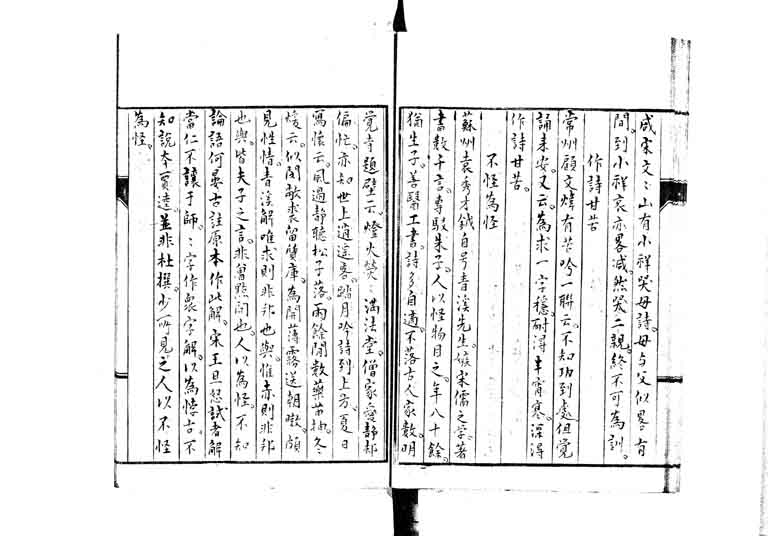 咸宋文〻山有小祥哭母詩母与父似畧有
間到小祥哀亦畧减然哭二親終不可為訓
作詩甘苦
常州顧文煒有苦吟一聯云不知功到處但覺
誦來安又云為求一字穩耐得半宵寒深得
作詩甘苦
不怪為怪
蘇州袁秀才鉞自号青溪先生嫉宋儒之学著
書数千言專駁朱子人以怪物目之年八十餘
猶生子善醫工書詩多自適不落古人家数明
覺寺題壁云燈火熒〻满法堂僧家愛静却
偏忙亦知世上逍遥客踏月吟詩到上方夏日
寫懷云風過静聽松子落雨餘閒数藥苗抽冬
煖云似閉敝裘留質庫為開薄霧送朝暾頗
見性情青溪解唯求則非邦也與惟赤則非邦
也與皆夫子之言非曾點問也人以為怪不知
論語何晏古註原本作此解宋王旦怒試者解
當仁不讓于師〻字作衆字解以為悖古不
知說本賈逵並非杜撰少所見之人以不怪
為怪